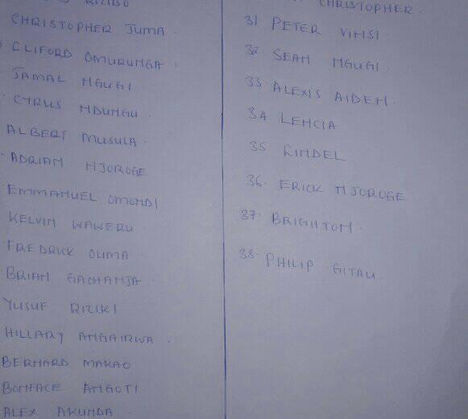 CHRISTOPHER JUMA
CLIFORD OMURUNGA
JAMAL NGUGI
CYRUS NDUNGU
ALBERT MUSULA
ADRIAN NJOROGE
EMMANUEL OMONDI
KELVIN WAWERU
FREDRICK OUMA
BRIAN GACHANJA
YUSUF RIZIKI
HILLARY ANGAIRWA
BERNARD MAKAO
BONFACE ANGOTI
ALEX AKUNDA
CHRISTOPHER
31 PETER VIHSI
32 SEAN NGUGI
33 ALEXIS AIDEN
34 LENCIA
35 LINDEL
36 ERICK NJOROGE
37 BRIGHTON
38 PHILIP GITAU